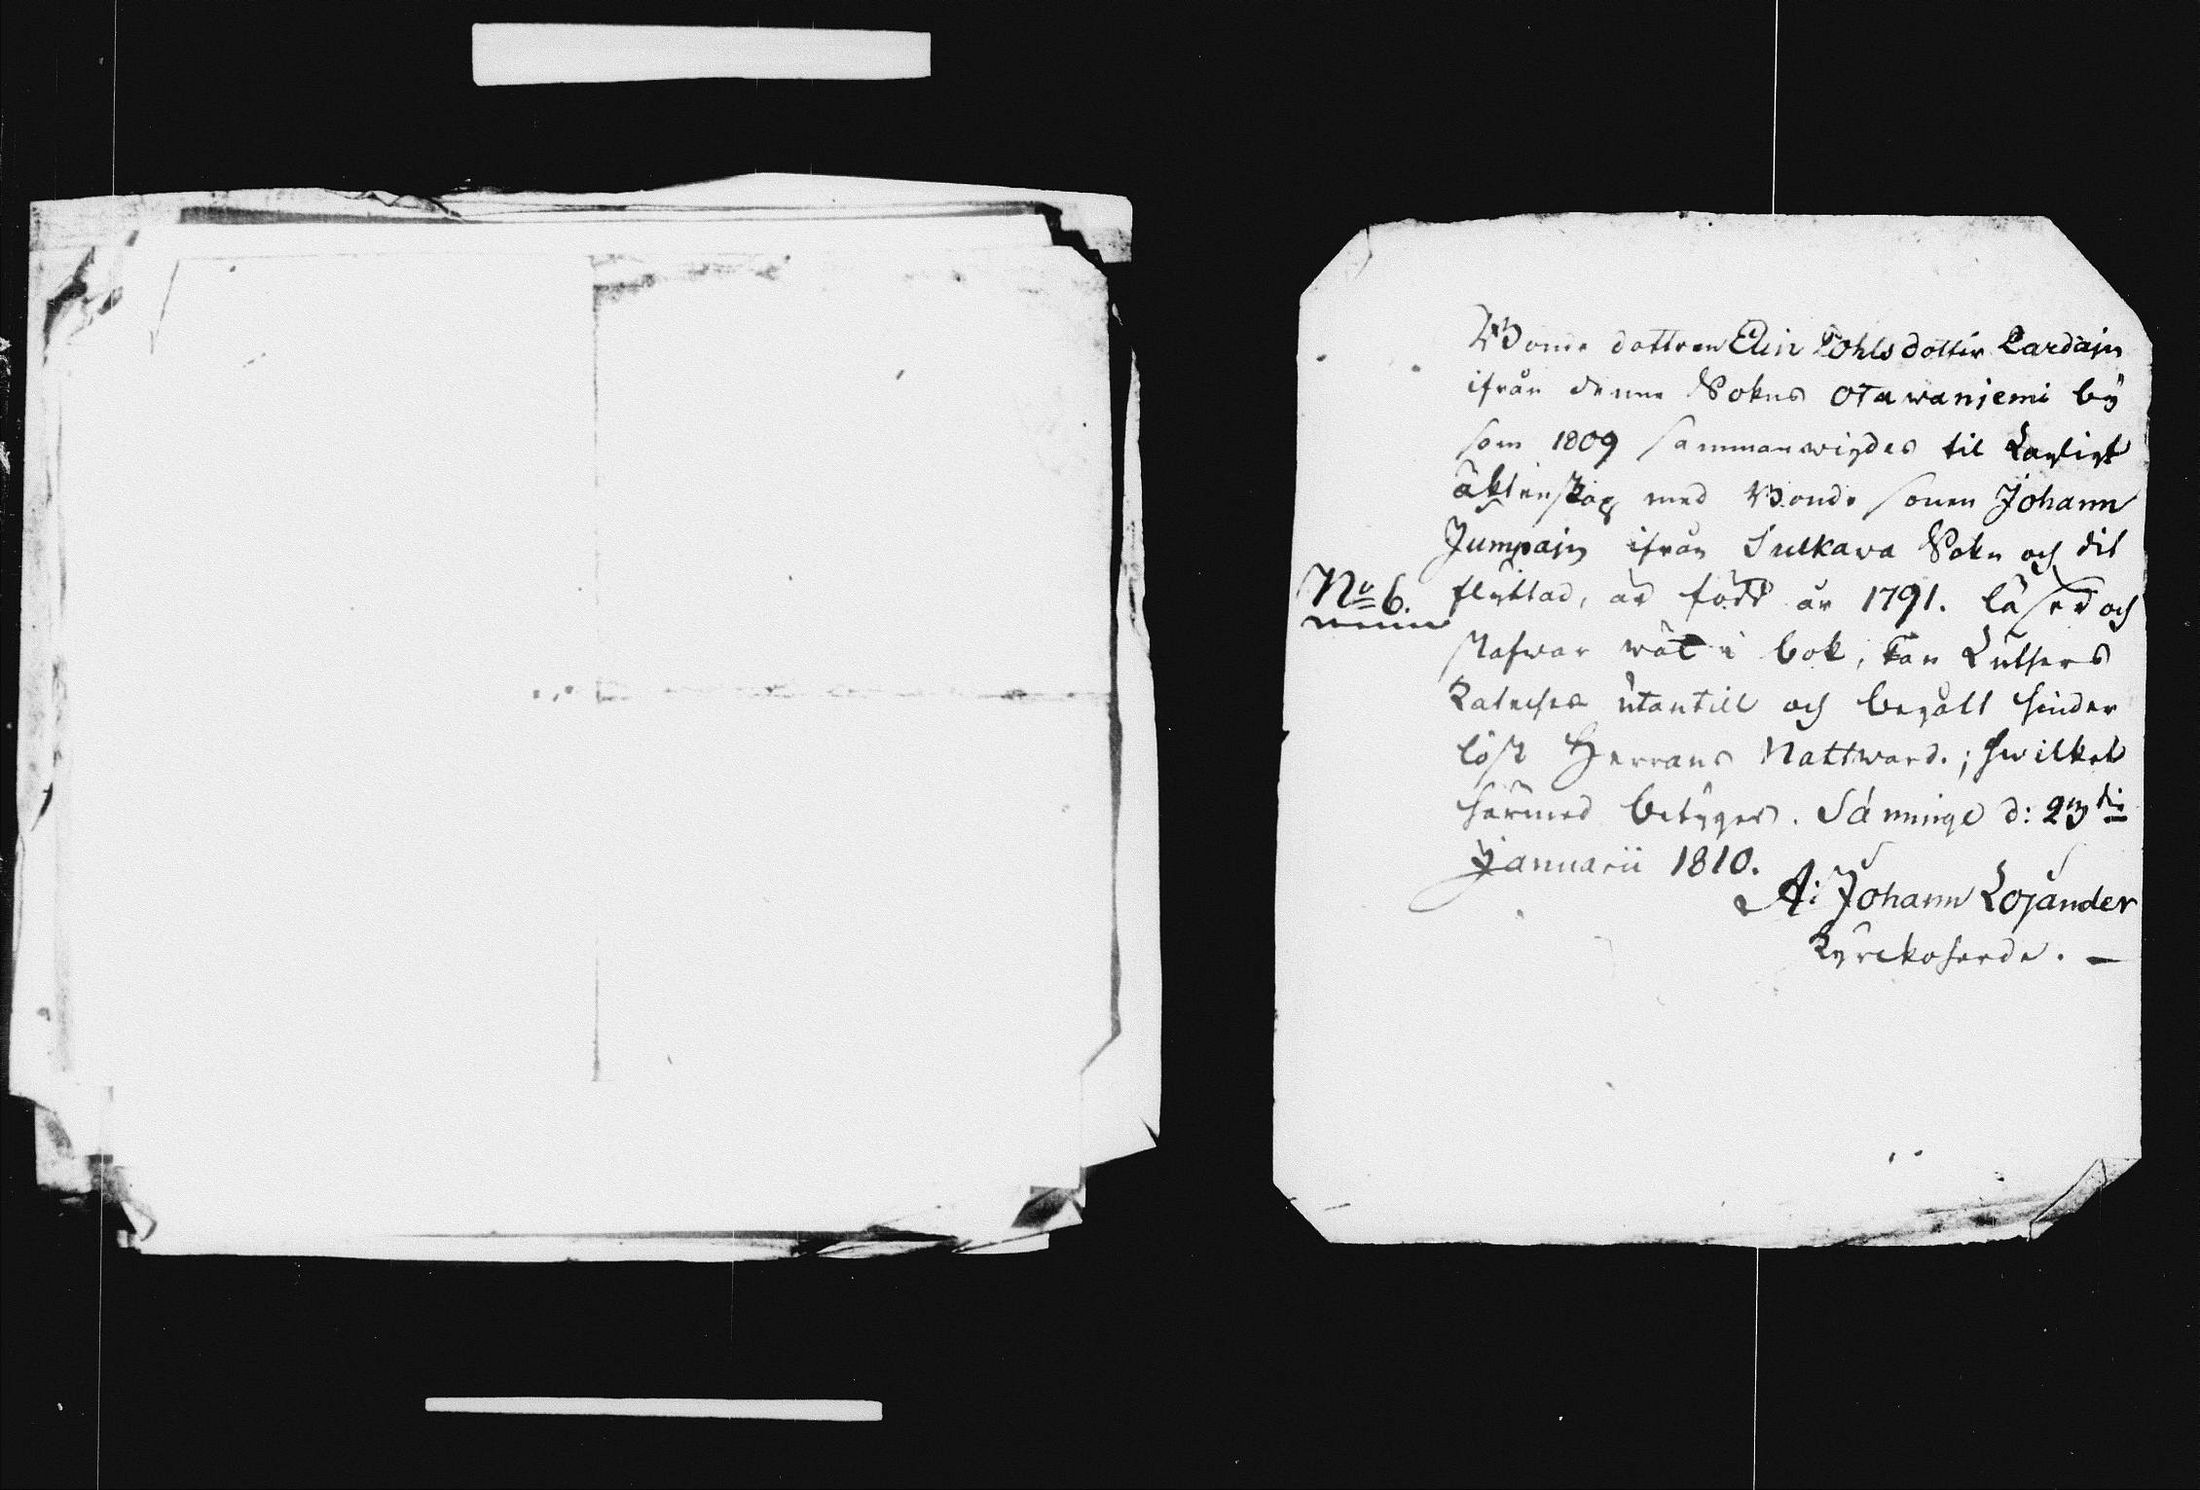 Bonde dottren Elin Pohlsdotter Pardain
ifrån denne Sokns Otawaniemi bÿ
som 1809 sammanwigdes til Lagligt
äktenskap med Bonde sonen Johann
Jumpain ifrån Sulkava Sokn och dit
No 6. flÿttad, är född år 1791. läser och
stafwar wäl i bok, kan Luthers
Kateches utantill och begått hinder
löst Herrans Nattward.; hwilket
härmed betÿges. Säminge d: 23die
Januarii 1810.
A: Johann Lojander
Kyrckoherde. —